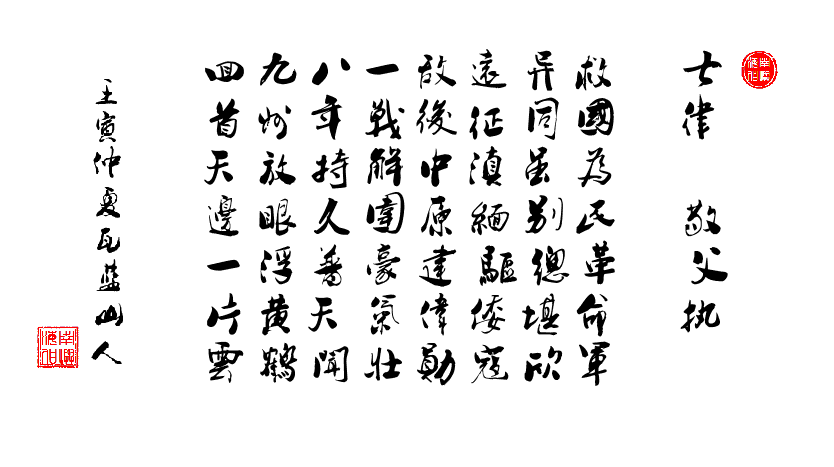 七律 敬父执
救國為民革命軍
异同虽别總堪欣
遠征滇緬驅倭寇
敌後中原建偉勛
一戰解圍豪氣壯
八年持久普天聞
九州放眼浮黄鶴
回首天邊一片雲
壬寅仲夏瓦蓝山人